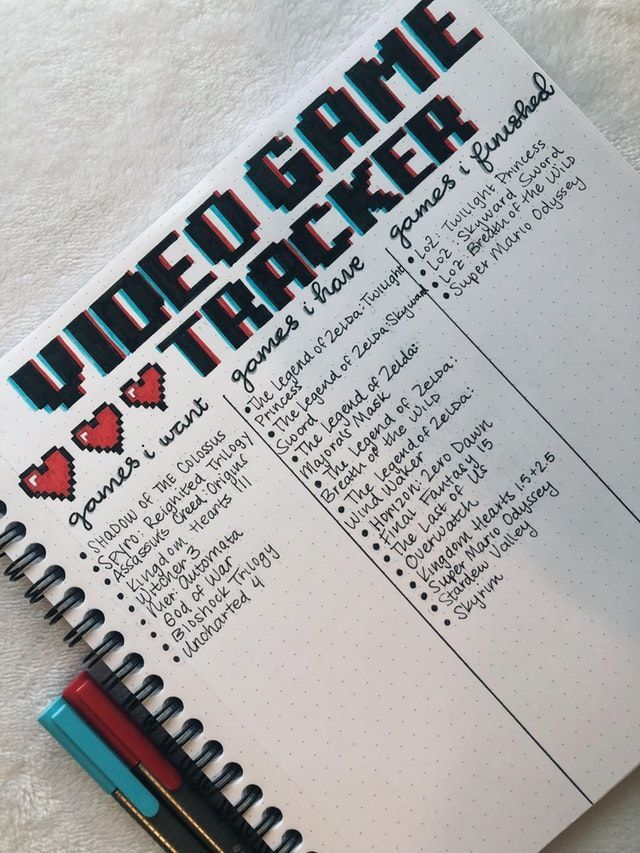 VIDEO GAME
TRACKER
games i want
• SHADOW OF THE COLOSSUS
• SPYRO: Reignited Trilogy
• Assassins Creed Origins
• Kingdom Hearts III
• Witcher 3
• Nier: Automata
• God of War
• Bioshock Trilogy
• Uncharted 4
games i have
• The Legend of Zelda: Twilight
Princess
• The Legend of Zelda: Skyward
Sword
• The Legend of Zelda:
Majoras Mask
• The Legend of Zelda:
Breath of the Wild
• The Legend of Zelda:
Wind Waker
• Horizon: Zero Dawn
• Final Fantasy 15
• The Last of Us
• Overwatch
• Kingdom Hearts 1.5+2.5
• Super Mario Odyssey
• Stardew Valley
• Skyrim
games i finished
• LoZ: Twilight Princess
• LoZ: Skyward Sword
• LoZ: Breath of the Wild
• Super Mario Odyssey